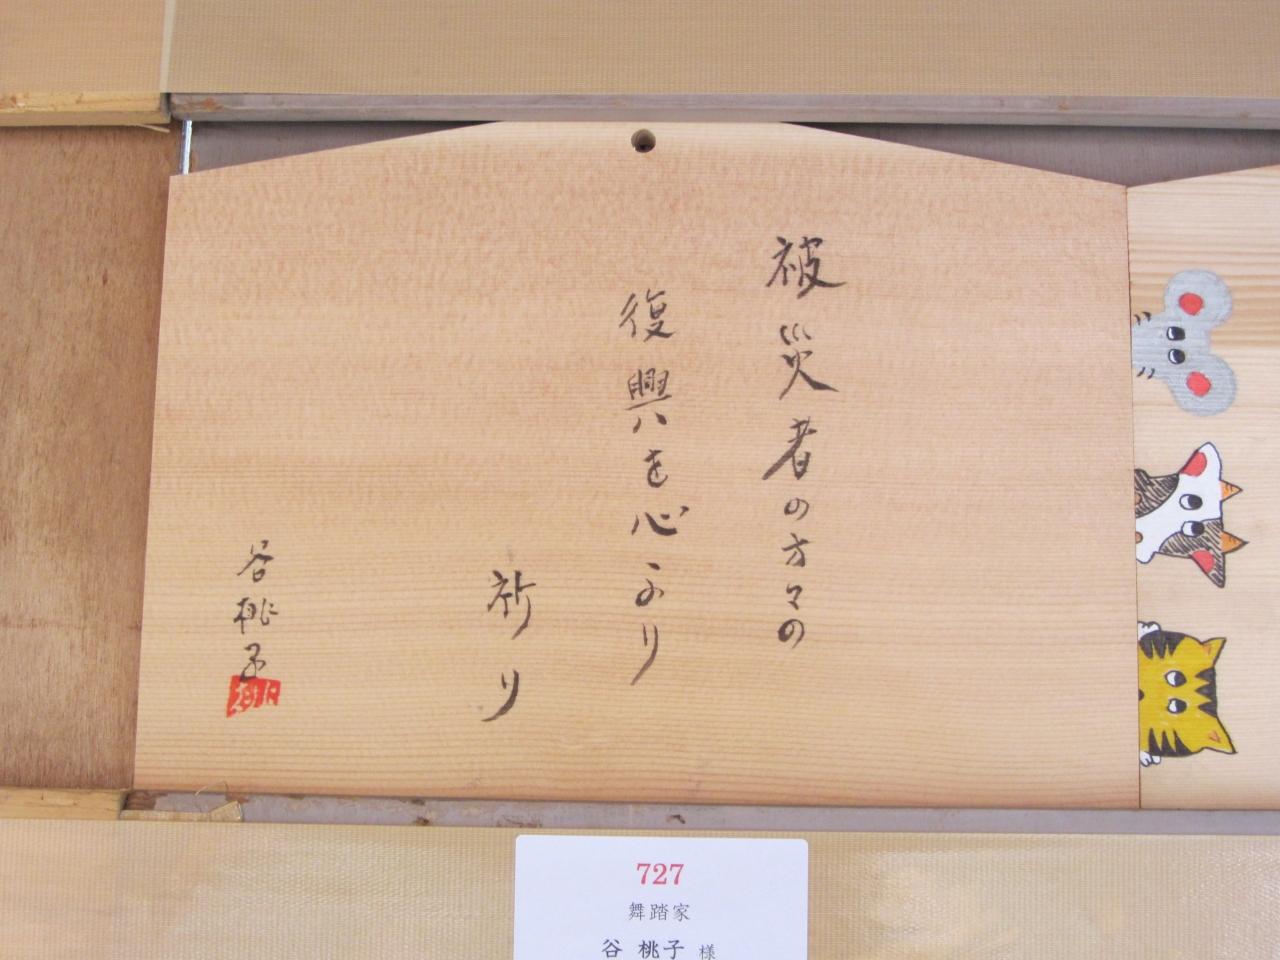 被災者の方々の
復興を心より
祈り
谷桃子
727
舞踏家
谷 桃子 様